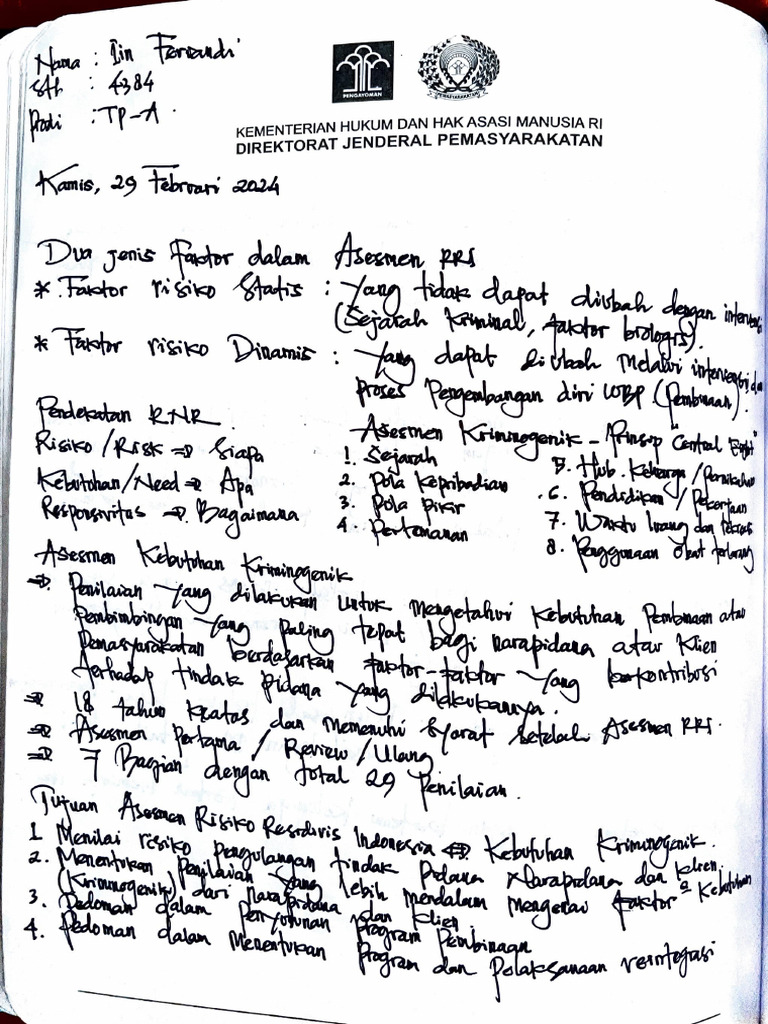 Nama : Iin Farrandi
Stb : 4384
Prodi : TP-A
PENGAYOMAN
PEMASYARAKATAN
KEMENTERIAN HUKUM DAN HAK ASASI MANUSIA RI
DIREKTORAT JENDERAL PEMASYARAKATAN
Kamis, 29 Februari 2024
Dua jenis Faktor dalam Asesmen RRI
* Faktor risiko Statis : Yang tidak dapat diubah dengan intervensi
(Sejarah Kriminal, faktor biologis).
* Faktor risiko Dinamis : Yang dapat diubah melalui intervensi dan
proses Pengembangan diri WBP (Pembinaan).
Pendekatan RNR
Risiko/Risk => Siapa
Kebutuhan/Need => Apa
Responsivitas => Bagaimana
Asesmen Kriminogenik - Prinsip "Central Eight"
1. Sejarah
2. Pola Kepribadian
3. Pola pikir
4. Pertemanan
5. Hub. Keluarga/Pernikahan
6. Pendidikan/Pekerjaan
7. Waktu luang dan rekreasi
8. Penggunaan Obat terlarang
Asesmen Kebutuhan Kriminogenik
=> Penilaian yang dilakukan untuk mengetahui Kebutuhan Pembinaan atau
Pembimbingan yang paling tepat bagi narapidana atau Klien
Pemasyarakatan berdasarkan faktor-faktor yang berkontribusi
terhadap tindak pidana yang dilakukannya.
=> 18 tahun keatas dan memenuhi syarat setelah Asesmen RRI.
=> Asesmen Pertama / Review / Ulang
=> 7 Bagian dengan total 29 Penilaian.
Tujuan Asesmen Risiko Residivis Indonesia <=> Kebutuhan Kriminogenik.
1 Menilai risiko pengulangan tindak Pidana Narapidana dan klien.
2. Menentukan penilaian yang lebih mendalam mengenai faktor² Kebutuhan
(Kriminogenik) dari narapidana dan Klien.
3. Pedoman dalam penyusunan program Pembinaan
4. Pedoman dalam Menentukan Program dan pelaksanaan reintegrasi